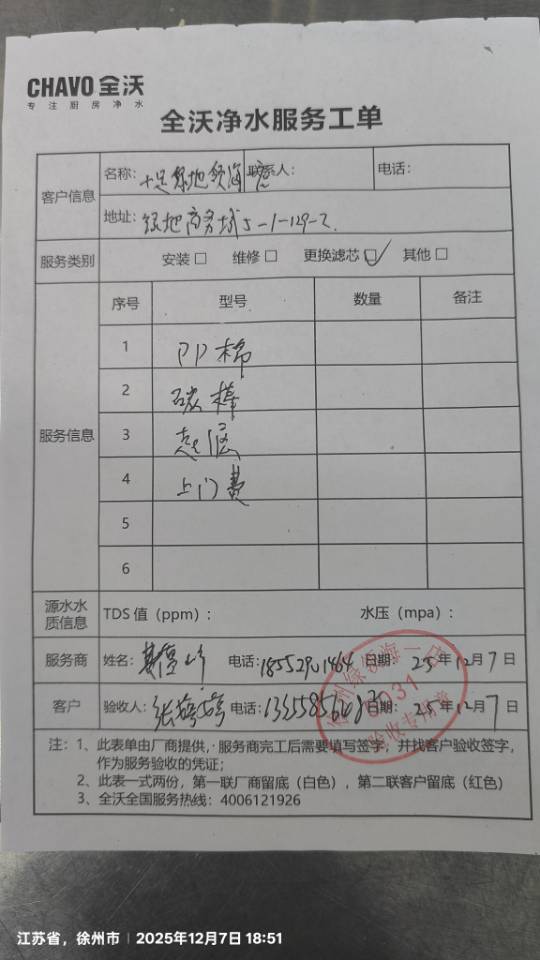 CHAVO 全沃
专注厨房净水
全沃净水服务工单
客户信息
名称: 绿地
联系人:
电话:
地址: 绿地商务城5-1-129-2
服务类别
安装□ 维修□ 更换滤芯□✓ 其他□
服务信息
序号 型号 数量 备注
1 PP棉
2 碳棒
3
4 上门费
5
6
源水水质信息
TDS 值(ppm): 水压(mpa):
服务商 姓名: 电话: 日期: 25年12月7日
客户 验收人: 张 电话: 日期: 25年12月7日
0031
验收专用章
注: 1、此表单由厂商提供,服务商完工后需要填写签字,并找客户验收签字,
作为服务验收的凭证;
2、此表一式两份,第一联厂商留底(白色),第二联客户留底(红色)
3、全沃全国服务热线: 4006121926
江苏省,徐州市 | 2025年12月7日 18:51